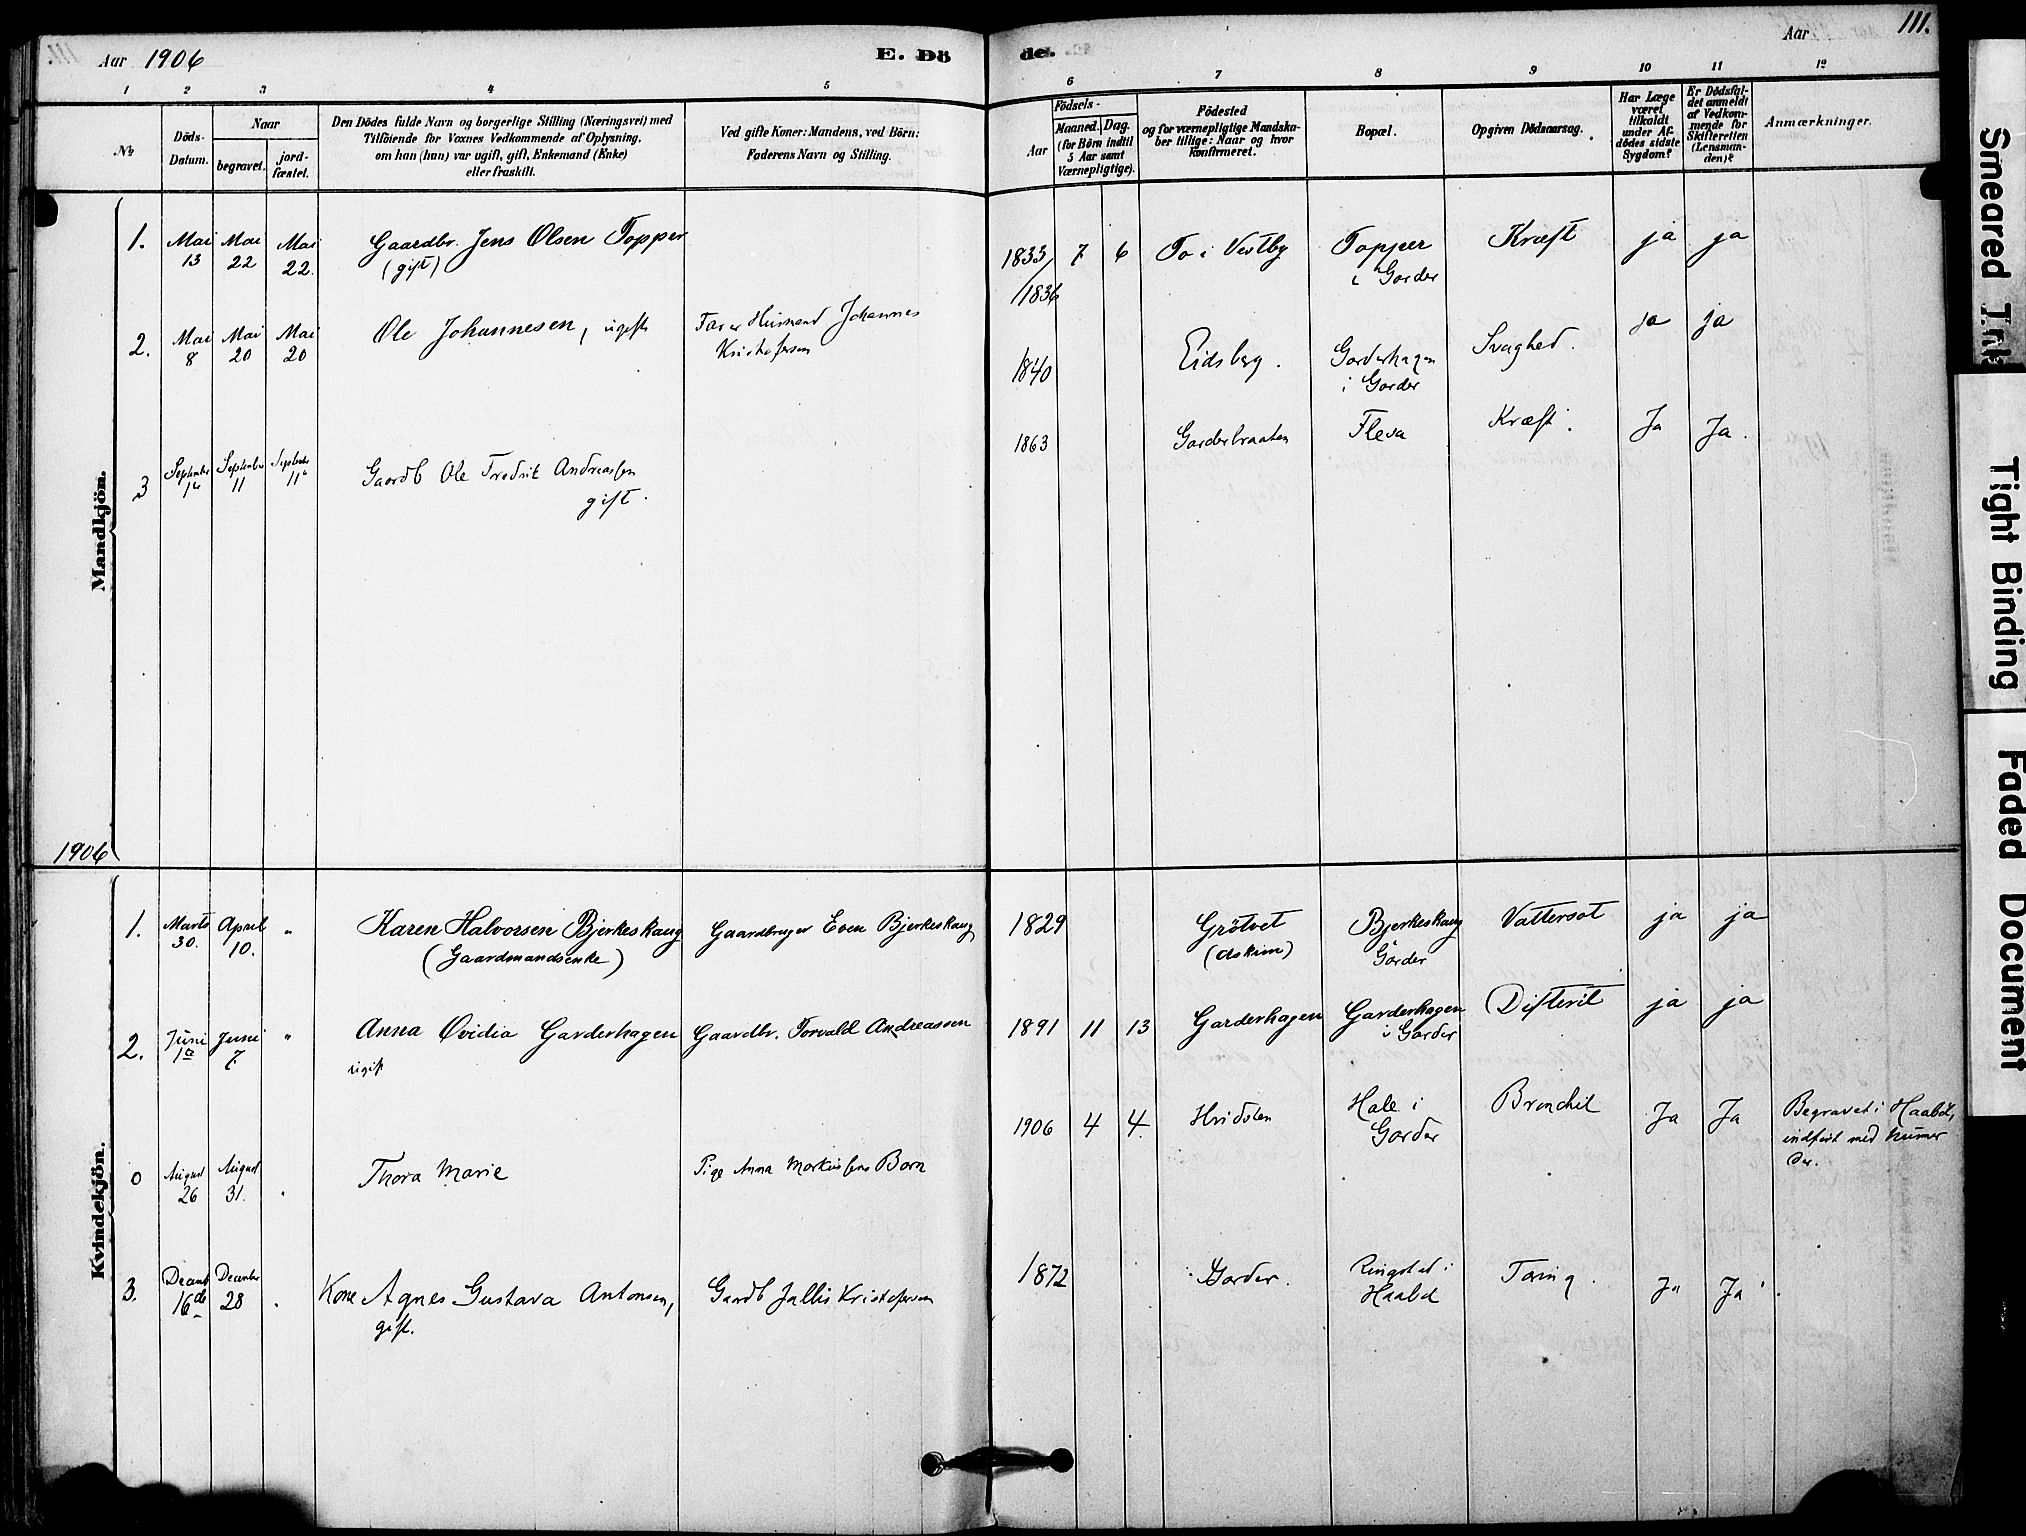 Aar 1906
E. Dö
de.
Aar
111.
1
2
3
4
5
6
7
8
9
10
11
12
№
Döds-
Datum.
Naar
begravet.
jord-
fæstet.
Den Dödes fulde Navn og borgerlige Stilling (Næringsvei) med
Tilföiende for Voxnes Vedkommende af Oplysning,
om han (hun) var ugift, gift, Enkemand (Enke)
eller fraskilt.
Ved gifte Koner: Mandens, ved Börn:
Faderens Navn og Stilling.
Födsels-
Aar
Maaned.
Dag.
(for Börn indtil
5 Aar samt
Værnepligtige).
Födested
og for værnepligtige Mandska-
ber tillige: Naar og hvor
konfirmeret.
Bopæl.
Opgiven Dödsaarsag.
Har Læge
været
tilkaldt
under Af-
dödes sidste
Sygdom?
Er Dödsfal-
det anmeldt
af Vedkom-
mende for
Skifteretten
(Lensman-
den)?
Anmærkninger.
Mandkjön.
1. Mai 13 Mai 22 Mai 22. Gaardbr. Jens Olsen Topper
(gift)
1833/1836 7 6 To i Vestby Topper
i Garder
Kræft ja ja
2. Mai 8 Mai 20 Mai 20 Ole Johannesen, ugift
Far er Husmand Johannes
Kristofersen
1840 Eidsberg. Garderhagen
i Garder
Svaghed. ja ja
3 September 1ste September 11 September 11te Gaardb Ole Fredrik Andreassen
gift.
1863 Garderbraaten Fleva Kræft. Ja Ja.
1906
Kvindekjön.
1. Marts 30. April 10. " Karen Halvorsen Bjerkeskaug
(Gaardmandsenke)
Gaardbruger Even Bjerkeskaug
1829 Grötvet
(Askim)
Bjerkeskaug
Garder
Vattersot ja ja
2. Juni 1ste Juni 7. " Anna Ovidia Garderhagen
ugift
Gaardbr. Torvald Andreassen
1891 11 13 Garderhagen Garderhagen
i Garder
Difterit ja ja
0 August 26 August 31. " Thora Marie
Pige Anna Markussens Barn
1906 4 4. Hvidsten Hale i
Garder
Bronchit Ja Ja Begravet i Haaböl,
indført med Numer
der.
3. Decemb 16de December 28 " Kone Agnes Gustava Antonsen,
gift.
Gaardb Jallis Kristofersen
1872 Garder. Ringstad i
Haaböl
Tæring. Ja Ja
Smeared Ink
Tight Binding
Faded Document